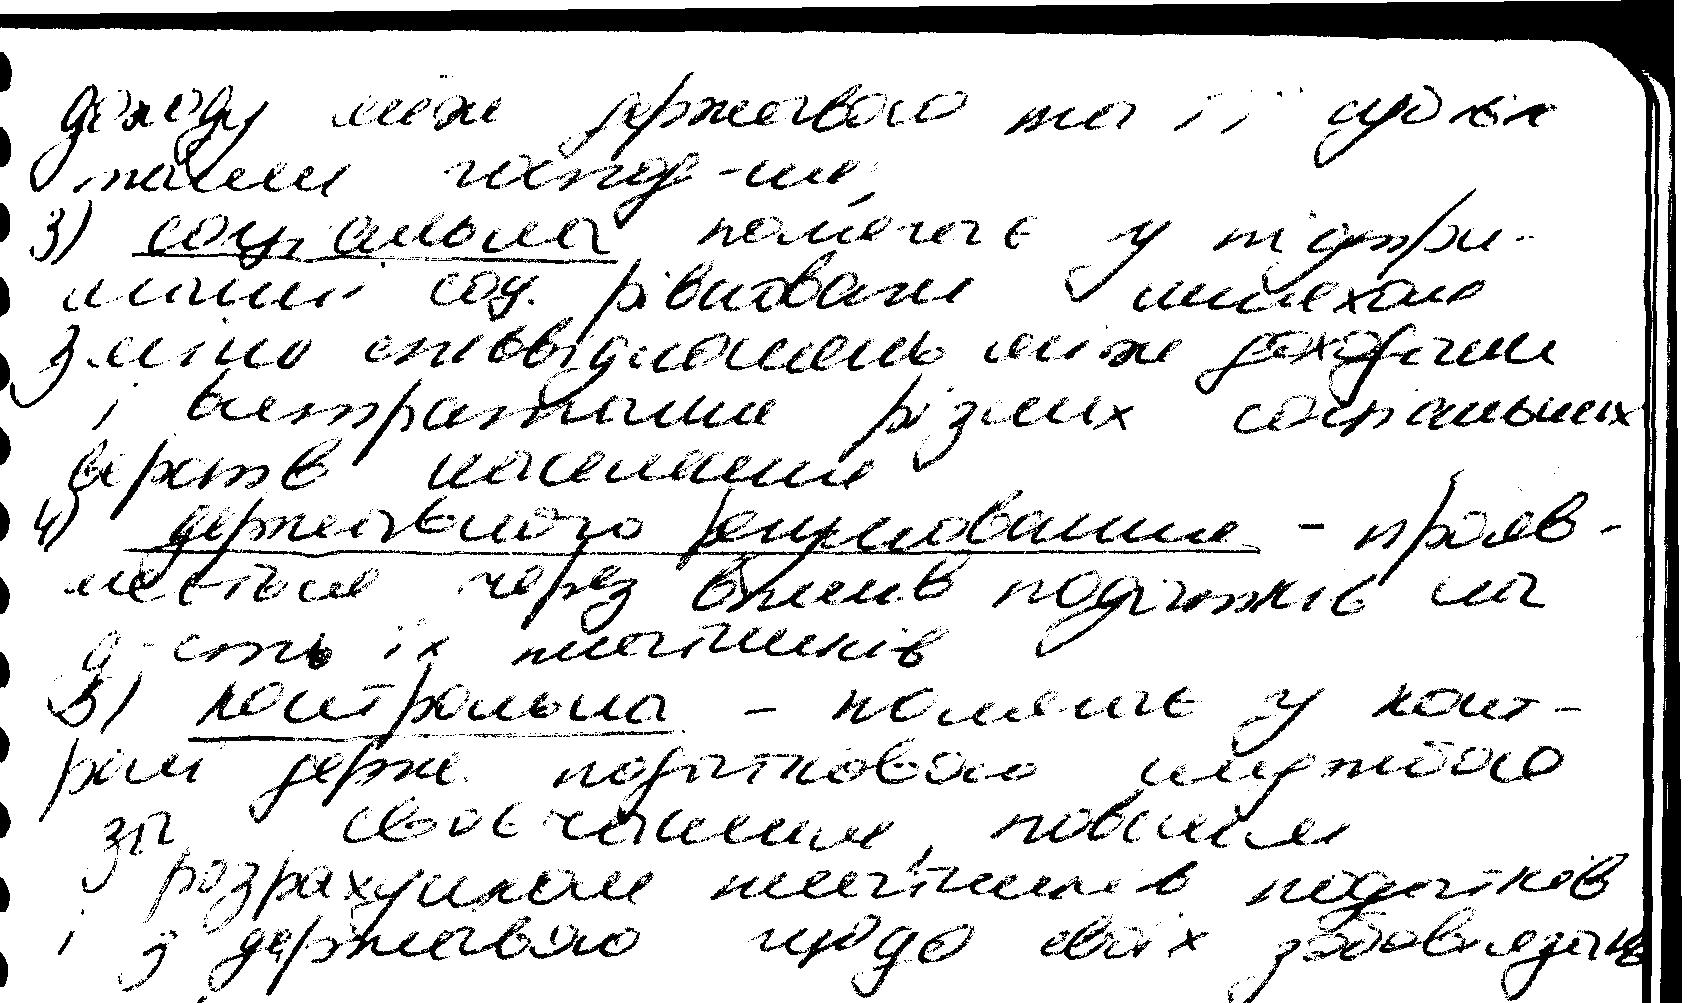 доходу між державою та її суб'єк
тами господ-ня;
3) соціальна полягає у підтри-
манні соц. рівноваги шляхом
зміни співвідношень між доходами
і витратами різних соціальних
верств населення
4) державного регулювання – прояв-
ляється через вплив податків на
д-сть їх платників
5) контрольна – полягає у конт-
ролі держ. податковою службою
за своєчасним, повним
розрахунком платників податків
і з державою щодо своїх зобов'язань